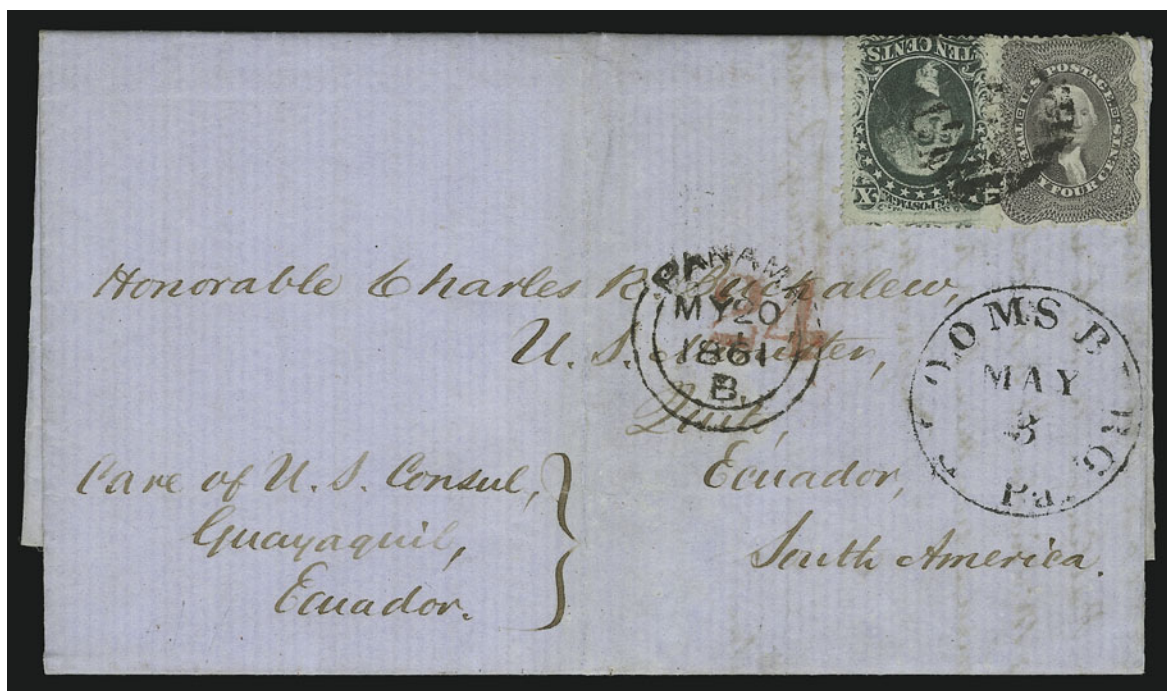 TEN CENTS
U.S. POSTAGE
X
U.S. POSTAGE.
TWENTY FOUR CENTS
Honorable Charles R. Buckalew,
U. S. Minister,
Quito,
Ecuador,
South America.
Care of U. S. Consul,
Guayaquil,
Ecuador.
PANAMA
MY 20
1861
B.
24
BLOOMSBURG
MAY
3
Pa.